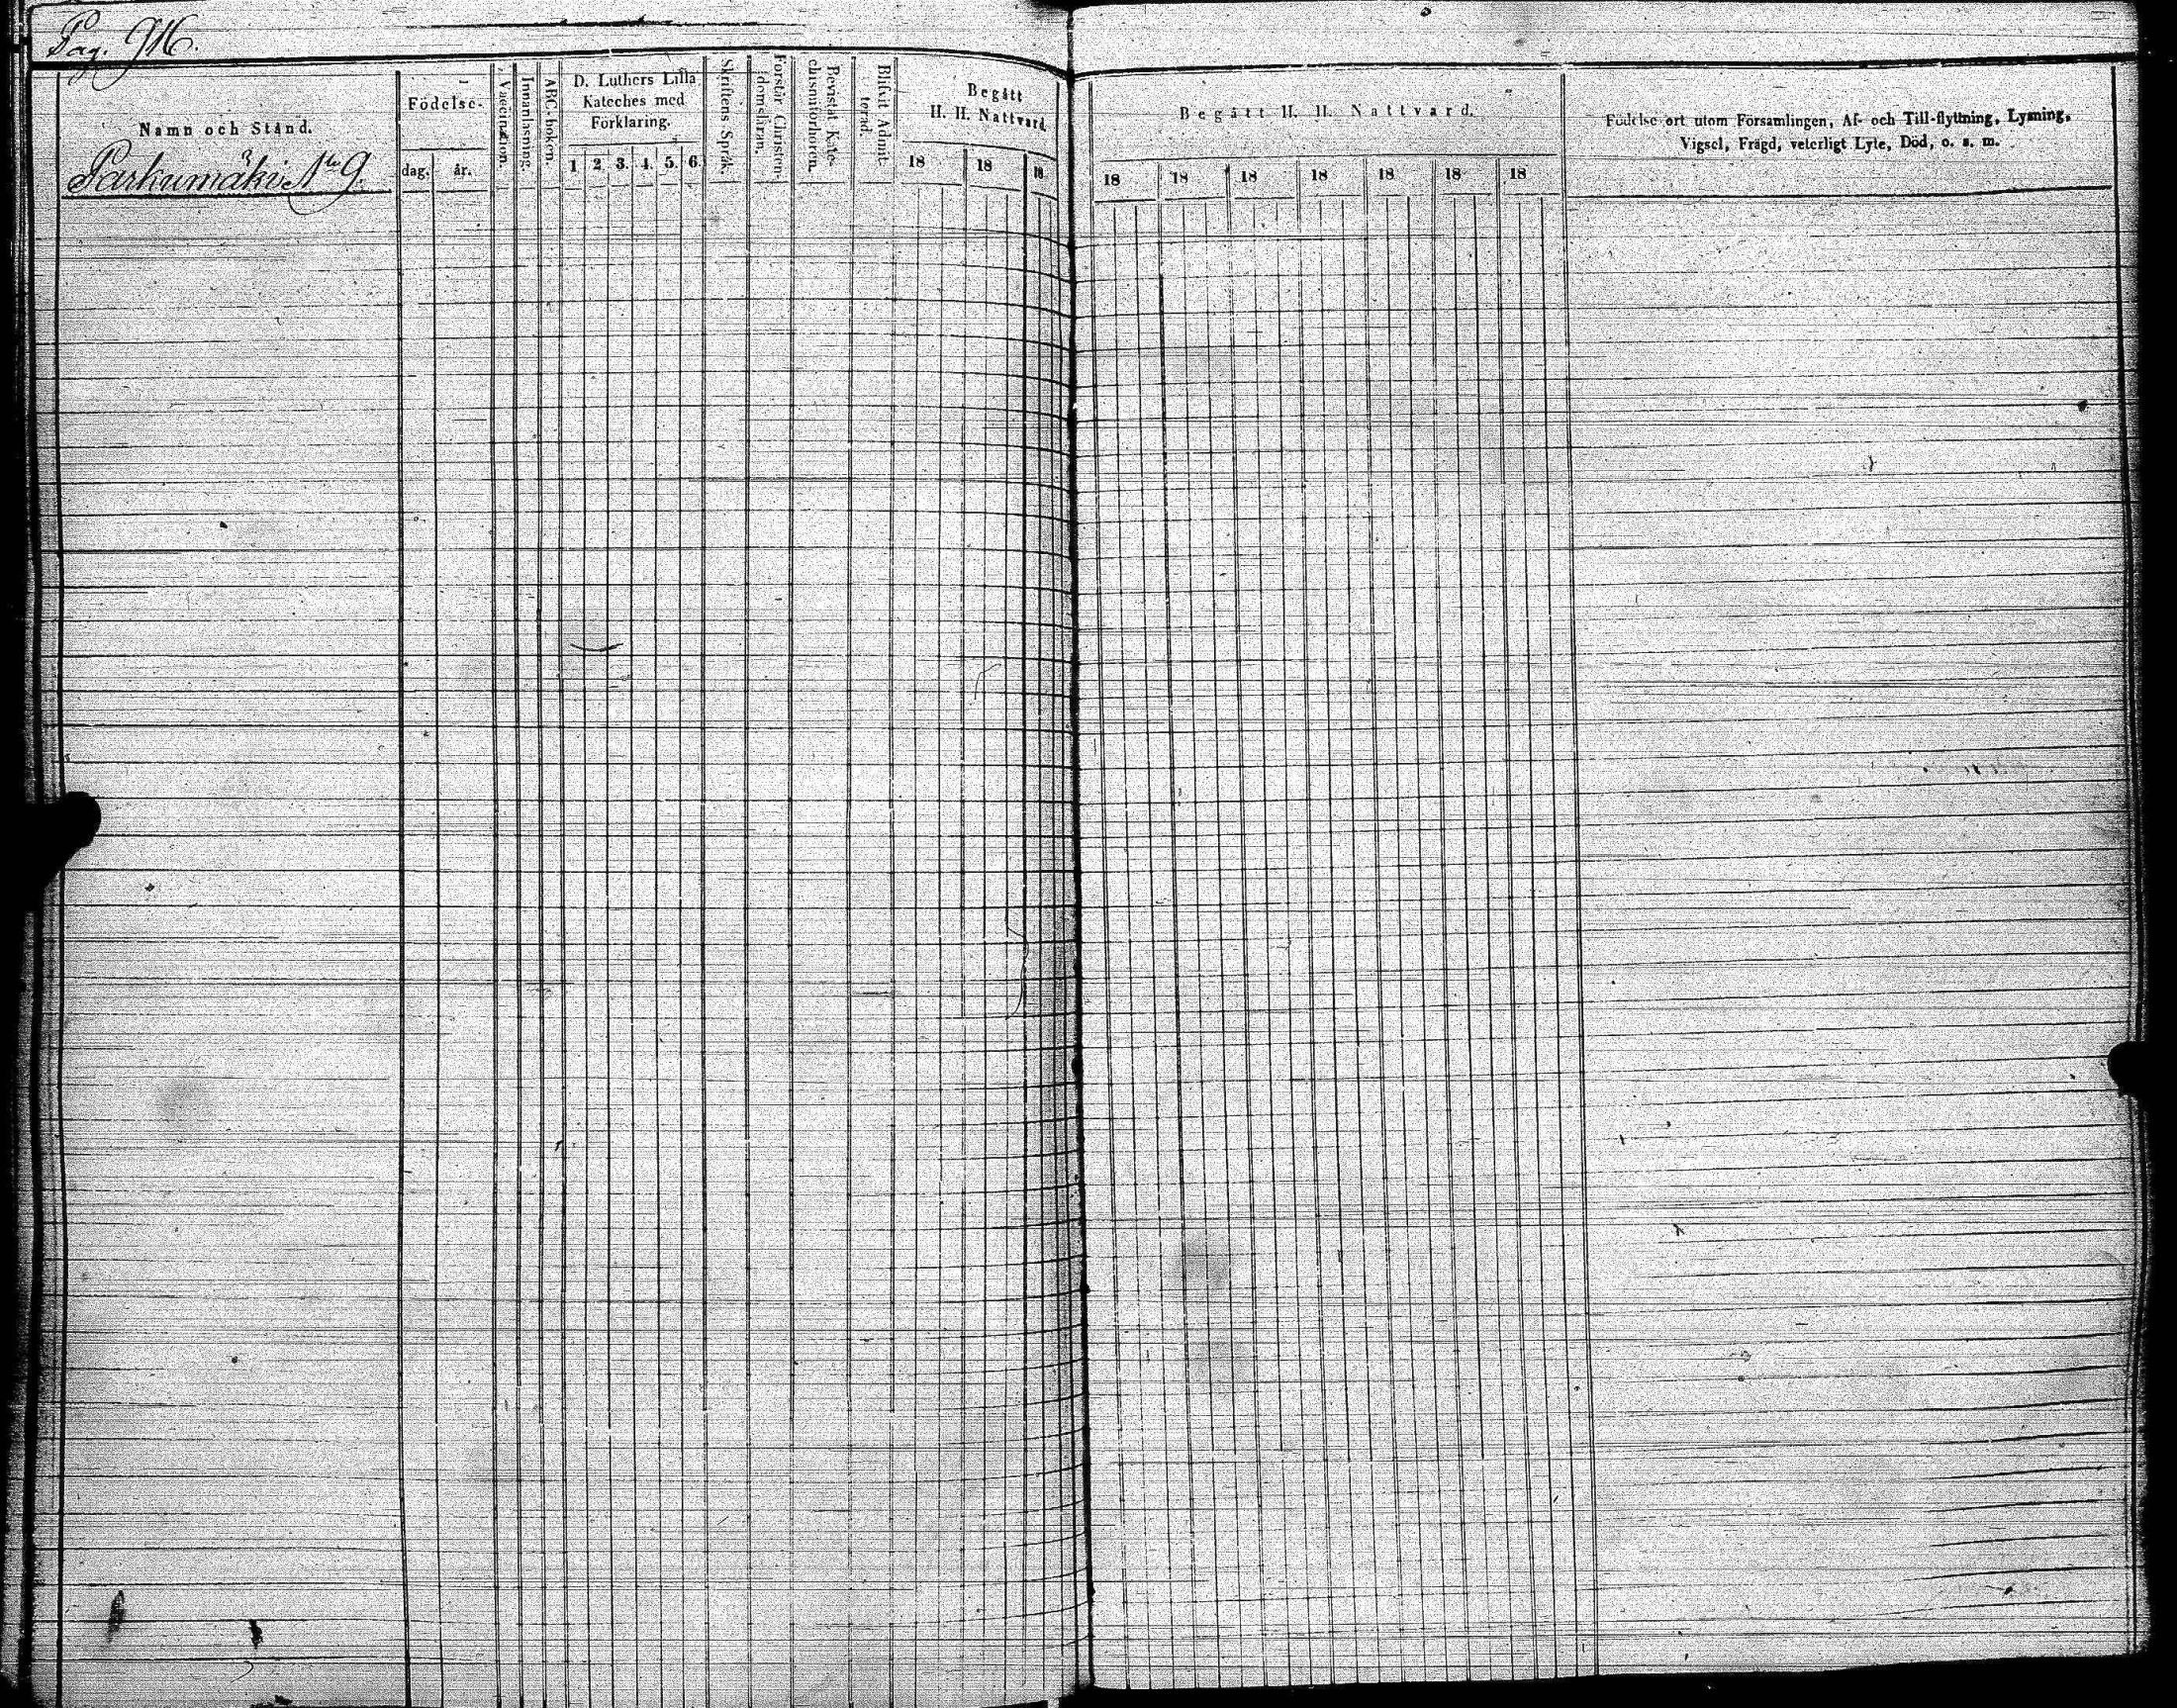 Pag. 916.
Namn och Stånd.
Parkumäki No 9.
Födelse-
dag.
år.
Vaccination.
Innanläsning.
ABC-boken.
D. Luthers Lilla
Kateches med
Förklaring.
1 2. 3. 4. 5. 6.
Skriftens Språk.
Förstår Christen-
domsläran.
Bevistat Kate-
chismiförhören.
Blifvit Admit-
terad.
Begått
H. H. Nattvard.
18 18 18
Begått H. H. Nattvard.
18 18 18 18 18 18 18
Födelse ort utom Församlingen, Af- och Till-flyttning, Lysning,
Vigsel, Frägd, veterligt Lyte, Död, o. s. m.